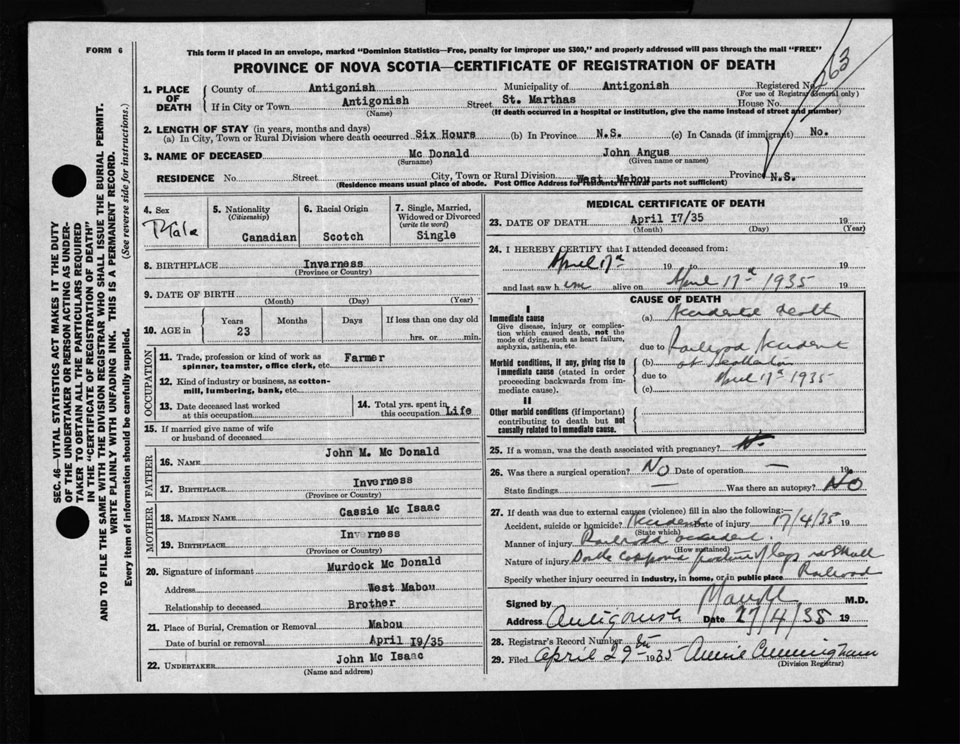 FORM 6
This form if placed in an envelope, marked "Dominion Statistics—Free, penalty for improper use $300," and properly addressed will pass through the mail "FREE"
PROVINCE OF NOVA SCOTIA—CERTIFICATE OF REGISTRATION OF DEATH
SEC. 46—VITAL STATISTICS ACT MAKES IT THE DUTY
OF THE UNDERTAKER OR PERSON ACTING AS UNDER-
TAKER TO OBTAIN ALL THE PARTICULARS REQUIRED
IN THE "CERTIFICATE OF REGISTRATION OF DEATH"
AND TO FILE THE SAME WITH THE DIVISION REGISTRAR WHO SHALL ISSUE THE BURIAL PERMIT.
WRITE PLAINLY WITH UNFADING INK. THIS IS A PERMANENT RECORD.
Every item of information should be carefully supplied. (See reverse side for instructions.)
1. PLACE OF DEATH
County of Antigonish Municipality of Antigonish Registered No. 263
(For use of Registrar General only)
If in City or Town Antigonish Street St. Marthas House No.
(Name) (If death occurred in a hospital or institution, give the name instead of street and number)
2. LENGTH OF STAY (in years, months and days)
(a) In City, Town or Rural Division where death occurred Six Hours (b) In Province N.S. (c) In Canada (if immigrant) No.
3. NAME OF DECEASED Mc Donald John Angus
(Surname) (Given name or names)
RESIDENCE No. Street City, Town or Rural Division West Mabou Province N.S.
(Residence means usual place of abode. Post Office Address for residents in rural parts not sufficient)
4. Sex Male
5. Nationality (Citizenship) Canadian
6. Racial Origin Scotch
7. Single, Married, Widowed or Divorced (write the word) Single
8. BIRTHPLACE Inverness
(Province or Country)
9. DATE OF BIRTH
(Month) (Day) (Year)
10. AGE in Years 23 Months Days If less than one day old hrs. or min.
OCCUPATION
11. Trade, profession or kind of work as spinner, teamster, office clerk, etc. Farmer
12. Kind of industry or business, as cotton-mill, lumbering, bank, etc.
13. Date deceased last worked at this occupation
14. Total yrs. spent in this occupation Life
15. If married give name of wife or husband of deceased
FATHER
16. NAME John M. Mc Donald
17. BIRTHPLACE Inverness
(Province or Country)
MOTHER
18. MAIDEN NAME Cassie Mc Isaac
19. BIRTHPLACE Inverness
(Province or Country)
20. Signature of informant Murdock Mc Donald
Address West Mabou
Relationship to deceased Brother
21. Place of Burial, Cremation or Removal Mabou
Date of burial or removal April 19/35
22. UNDERTAKER John Mc Isaac
(Name and address)
MEDICAL CERTIFICATE OF DEATH
23. DATE OF DEATH April 17/35 19
(Month) (Day) (Year)
24. I HEREBY CERTIFY that I attended deceased from:
April 17th 19 to 19
and last saw h im alive on April 17th 1935 19
CAUSE OF DEATH
I
Immediate cause
Give disease, injury or complication which caused death, not the mode of dying, such as heart failure, asphyxia, asthenia, etc.
(a) Accidental death
due to Railroad Accident
Morbid conditions, if any, giving rise to immediate cause (stated in order proceeding backwards from immediate cause).
(b) at
due to April 17th 1935
(c)
II
Other morbid conditions (if important) contributing to death but not causally related to immediate cause.
25. If a woman, was the death associated with pregnancy?
26. Was there a surgical operation? No Date of operation — 19
State findings — Was there an autopsy? No
27. If death was due to external causes (violence) fill in also the following:
Accident, suicide or homicide? Accident Date of injury 17/4/35 19
(State which)
Manner of injury Railroad accident.
(How sustained)
Nature of injury Double compound fracture of legs Skull
Specify whether injury occurred in industry, in home, or in public place Railroad
Signed by M.D.
Address Antigonish Date 27/4/35 19
28. Registrar's Record Number
29. Filed April 29th 1935 Annie Cunningham
(Division Registrar)